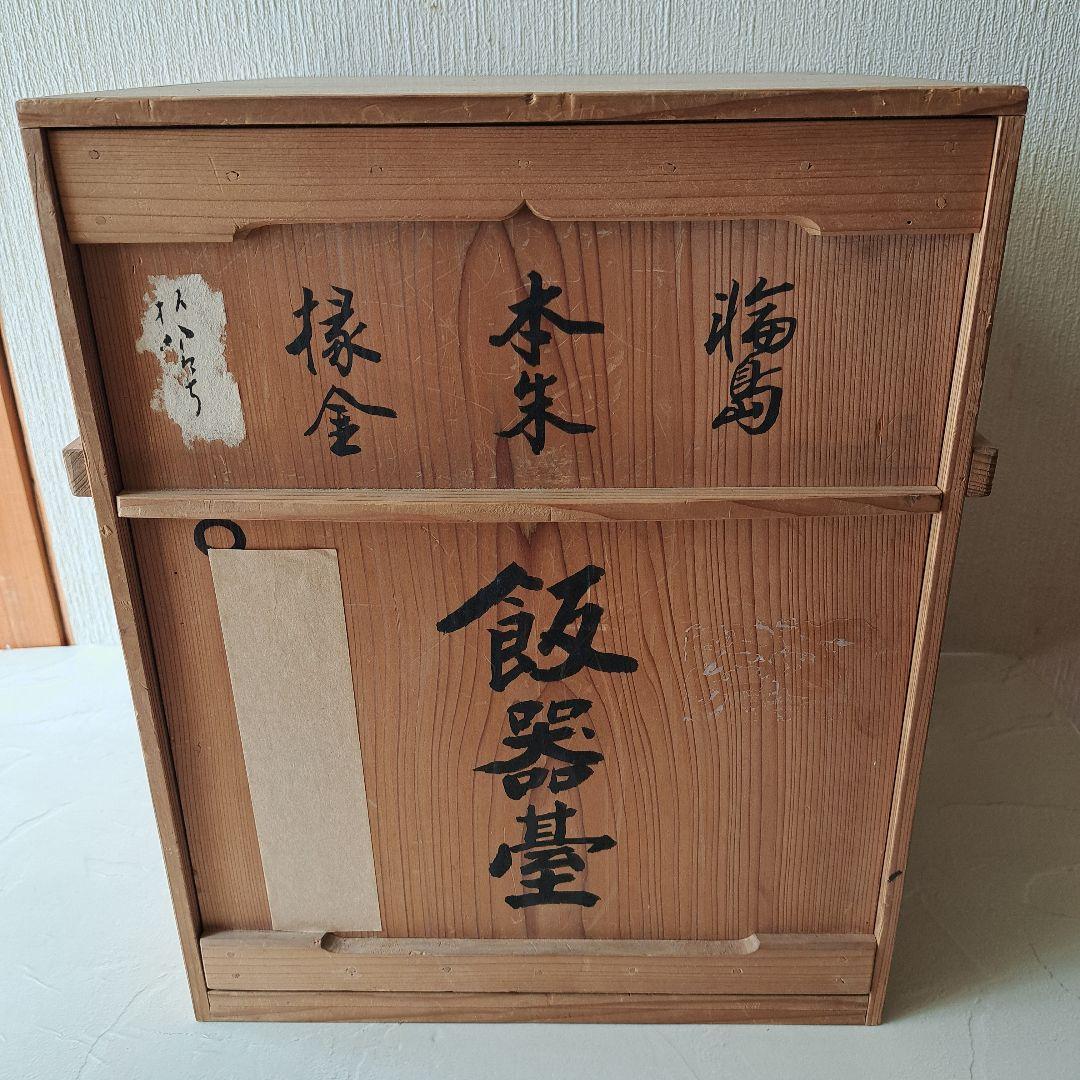 輪島
本朱
縁金
飯器臺